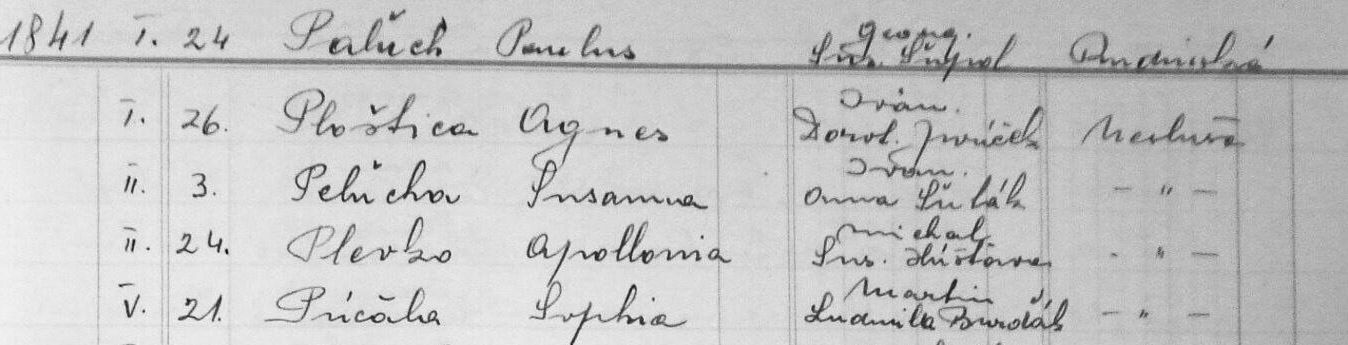 1841 I. 24 Palúch Paulus Georg.
Sus. Rudinská
I. 26. Ploštica Agnes Iván.
Dorot. Juríček Nesluša
II. 3. Pelúcha Susanna Iván.
Anna Šulák - " -
II. 24. Plevko Apollonia Michal
Sus. - " -
V. 21. Sophia Martin
Ludmila Burdák - " -